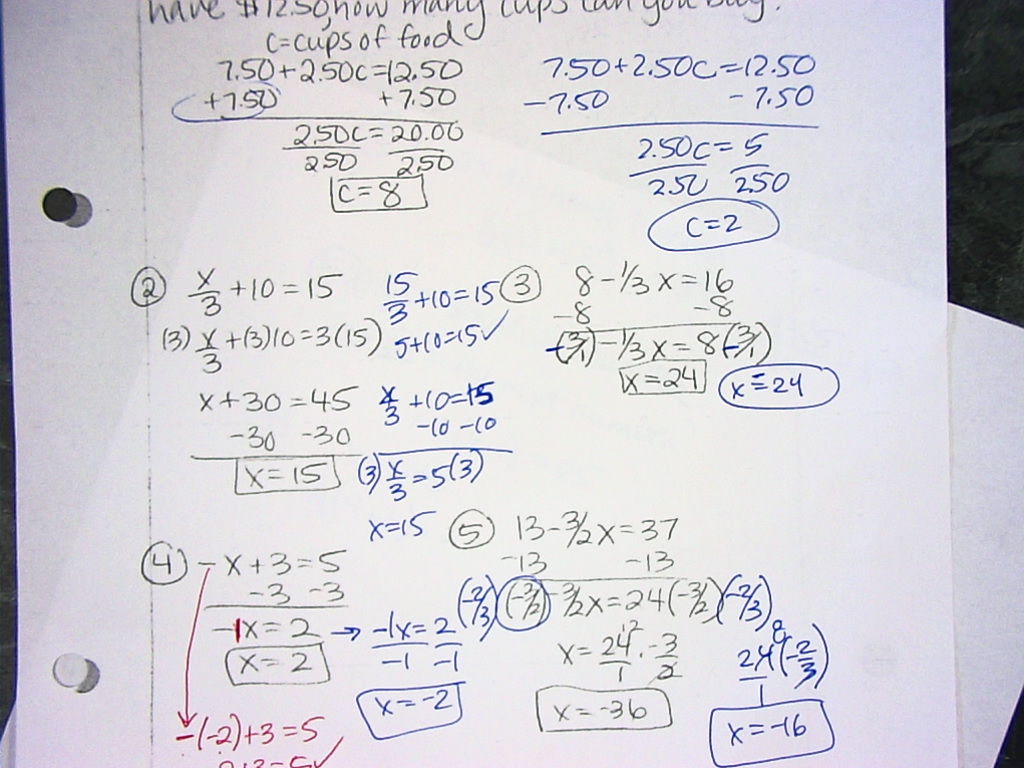 have $12.50, how many cups can you buy?
c=cups of food
7.50+2.50c=12.50
+7.50 +7.50
2.50c=20.00
2.50 2.50
c=8
7.50+2.50c=12.50
-7.50 -7.50
2.50c=5
2.50 2.50
c=2
② x/3 +10=15
(3) x/3 +(3)10=3(15)
x+30=45
-30 -30
x=15
15/3 +10=15
5+10=15✓
x/3 +10=15
-10 -10
(3) x/3 =5(3)
x=15
③ 8-1/3 x=16
-8 -8
-(3/1)-1/3x=8(-3/1)
x=24
x=-24
④ -x+3=5
-3 -3
-1x=2 →
x=2
-1x=2
-1 -1
x=-2
-(-2)+3=5
2+3=5✓
⑤ 13-3/2x=37
-13 -13
(-2/3)(-3/2)-3/2x=24(-3/2)(-2/3)
x=24/1 12 · -3/2
x=-36
24/1 8 (-2/3)
x=-16